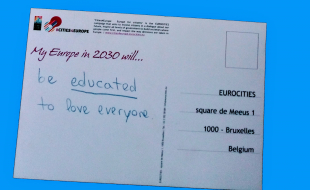 #CITIES4EUROPE
My Europe in 2030 will...
be educated
to love everyone.
EUROCITIES
square de Meeus 1
1000 - Bruxelles
Belgium